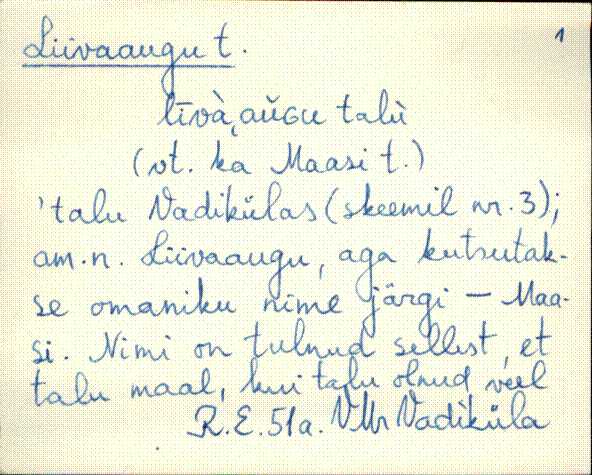 Liivaaugu t.
1
līvà, aŭɢu talù
(vt. ka Maasi t.)
'talu Vadikülas (skeemil nr. 3);
am.n. Liivaaugu, aga kutsutak-
se omaniku nime järgi – Maa-
si. Nimi on tulnud sellest, et
talu maal, kui talu olnud veel
R.E. 51a. VMr Vadiküla